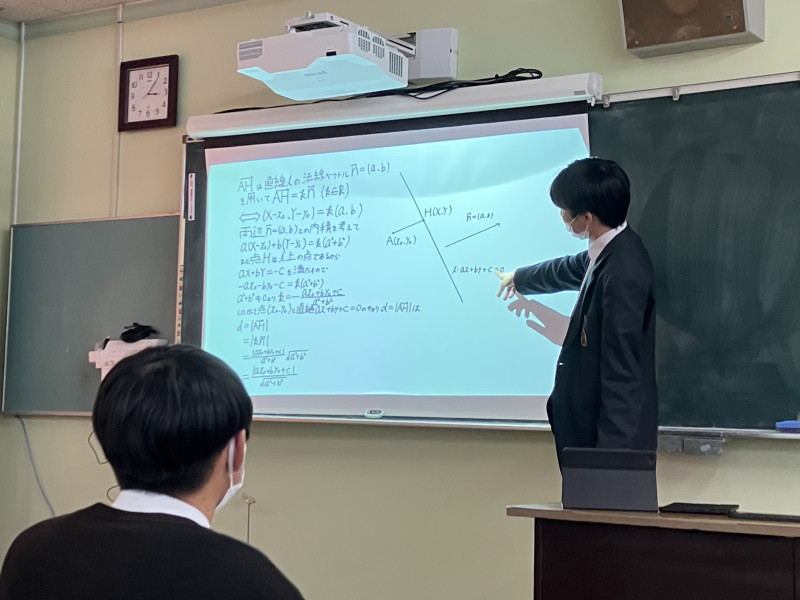 AH⃗は直線lの法線ベクトルn⃗=(a,b)
を用いてAH⃗=kn⃗ (k∈R)
⟺(X-x₀,Y-y₀)=k(a,b)
両辺n⃗=(a,b)との内積を考えて
a(X-x₀)+b(Y-y₀)=k(a²+b²)
また点Hはl上の点であるから
aX+bY=-Cを満たすので
-ax₀-by₀-C=k(a²+b²)
a²+b²≠0よりk=-\frac{ax₀+by₀+C}{a²+b²}
したがって点(x₀,y₀)と直線ax+by+C=0のキョリd=|AH⃗|は
d=|AH⃗|
=|kn⃗|
=\frac{|ax₀+by₀+C|}{a²+b²}√(a²+b²)
=\frac{|ax₀+by₀+C|}{√(a²+b²)}
H(X,Y)
n⃗=(a,b)
A(x₀,y₀)
l:ax+by+C=0